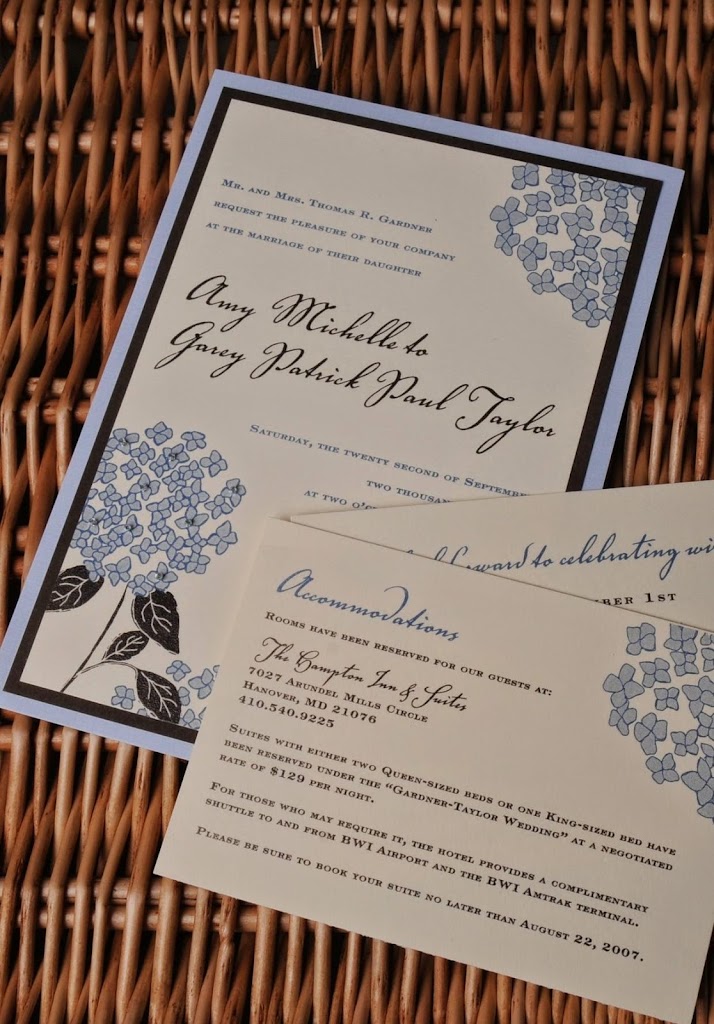 Mr. and Mrs. Thomas R. Gardner
request the pleasure of your company
at the marriage of their daughter
Amy Michelle to
Garey Patrick Paul Taylor
Saturday, the twenty second of September
two thousan
at two o'c
forward to celebrating wi
ber 1st
Accommodations
Rooms have been reserved for our guests at:
The Hampton Inn & Suites
7027 Arundel Mills Circle
Hanover, MD 21076
410.540.9225
Suites with either two Queen-sized beds or one King-sized bed have
been reserved under the "Gardner-Taylor Wedding" at a negotiated
rate of $129 per night.
For those who may require it, the hotel provides a complimentary
shuttle to and from BWI Airport and the BWI Amtrak terminal.
Please be sure to book your suite no later than August 22, 2007.